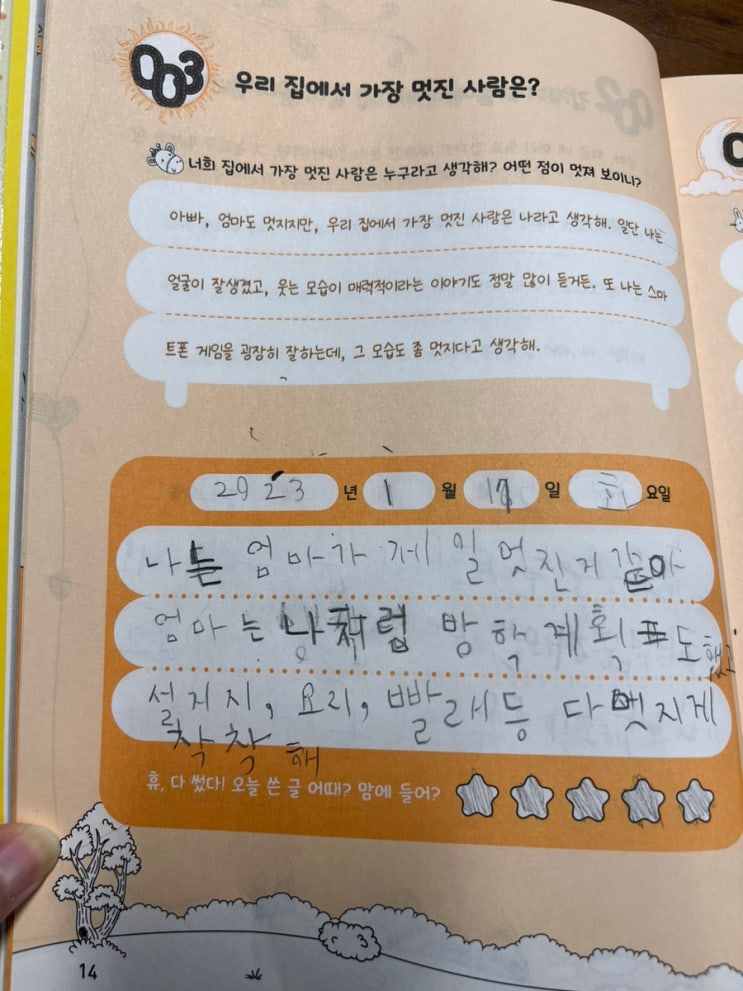 003
우리 집에서 가장 멋진 사람은?
너희 집에서 가장 멋진 사람은 누구라고 생각해? 어떤 점이 멋져 보이니?
아빠, 엄마도 멋지지만, 우리 집에서 가장 멋진 사람은 나라고 생각해. 일단 나는
얼굴이 잘생겼고, 웃는 모습이 매력적이라는 이야기도 정말 많이 듣거든. 또 나는 스마
트폰 게임을 굉장히 잘하는데, 그 모습도 좀 멋지다고 생각해.
2023 년 1 월 17 일 화 요일
나는 엄마가 께일 멋진거 같아
엄마는 나처럼 방학계획표도했고
설거지, 요리, 빨래등 다 멋지게
착착 해
휴, 다 썼다! 오늘 쓴 글 어때? 맘에 들어?
14